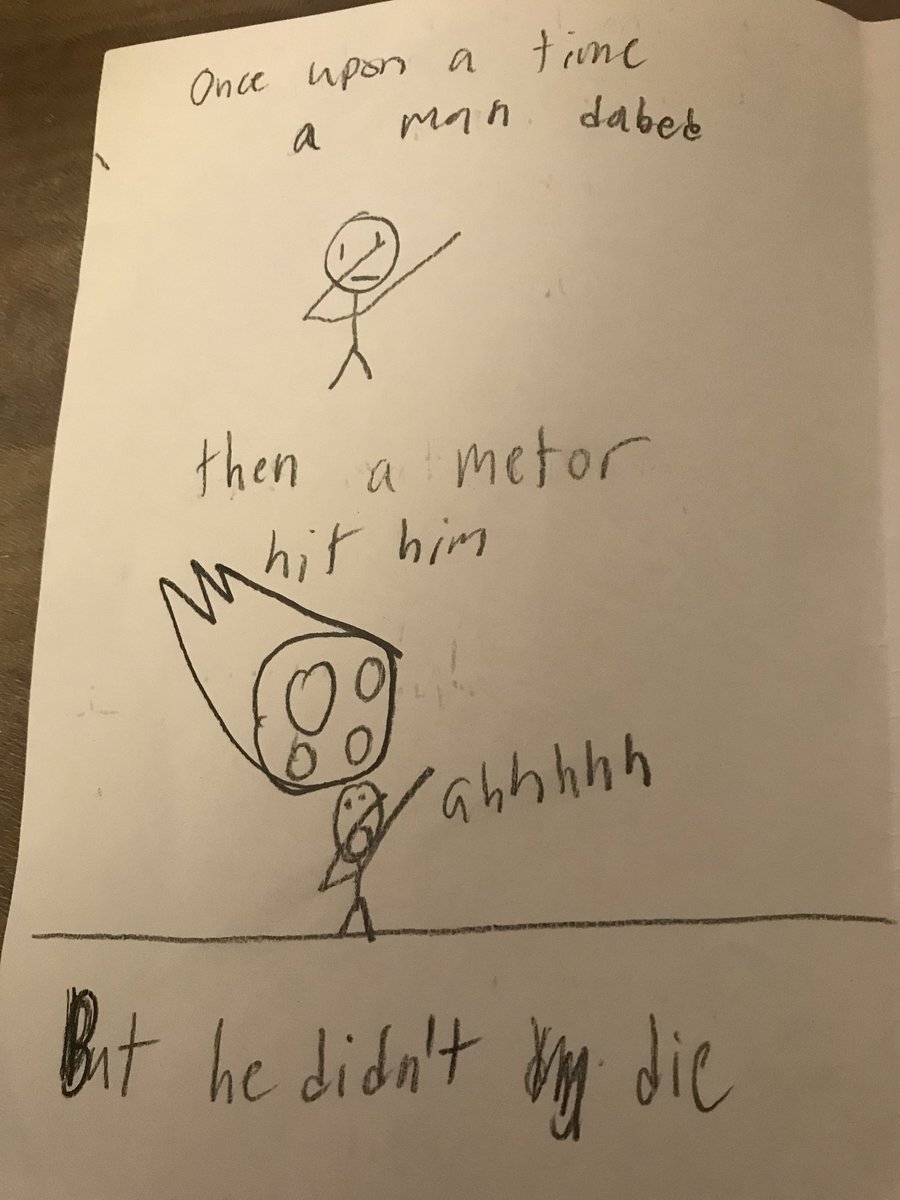 Once upon a time
a man dabed
then a metor
hit him
ahhhhh
But he didn't die